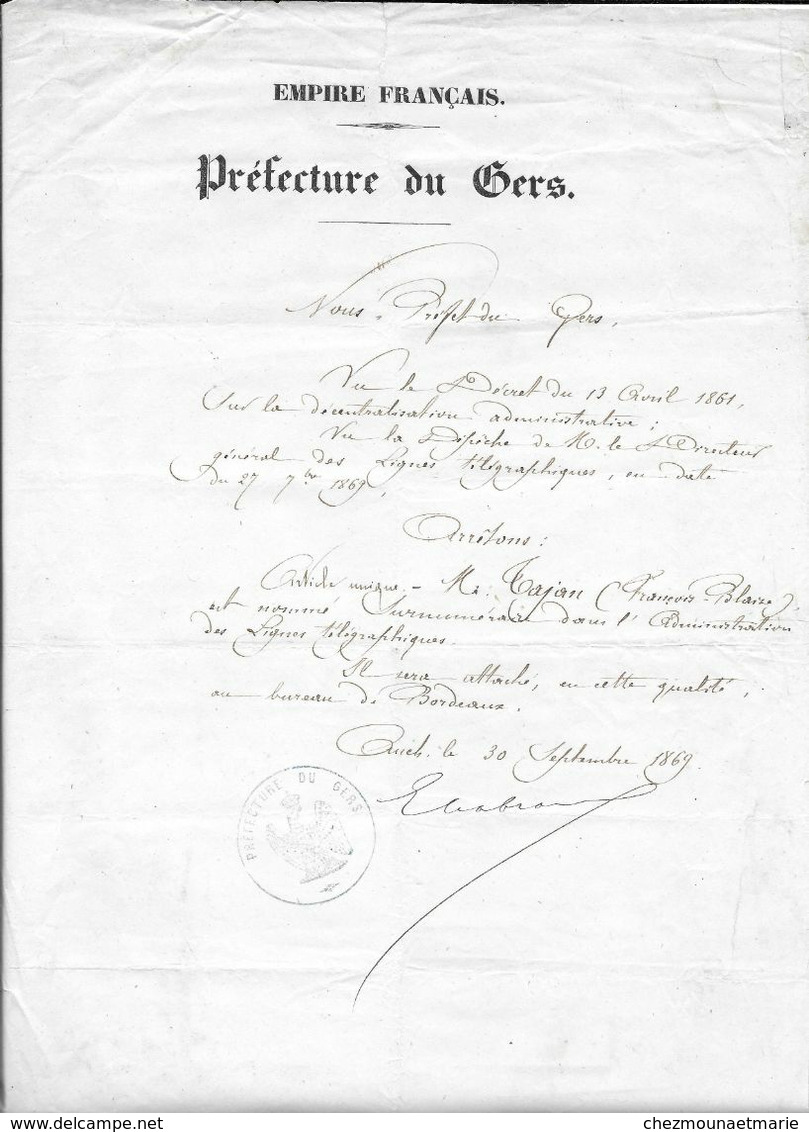 EMPIRE FRANÇAIS.
Préfecture du Gers.
Nous, Préfet du Gers,
Vu le Décret du 13 Avril 1861,
sur la décentralisation administrative ;
Vu la Dépêche de M. le Directeur
général des Lignes télégraphiques, en date
du 27 7bre 1869,
Arrêtons :
Article unique. - Mr. Tajan (François-Blaize)
est nommé Surnuméraire dans l'Administration
des Lignes télégraphiques.
Il sera attaché, en cette qualité,
au bureau de Bordeaux.
Auch, le 30 Septembre 1869.
PRÉFECTURE DU GERS
delcampe.net
chezmounaetmarie